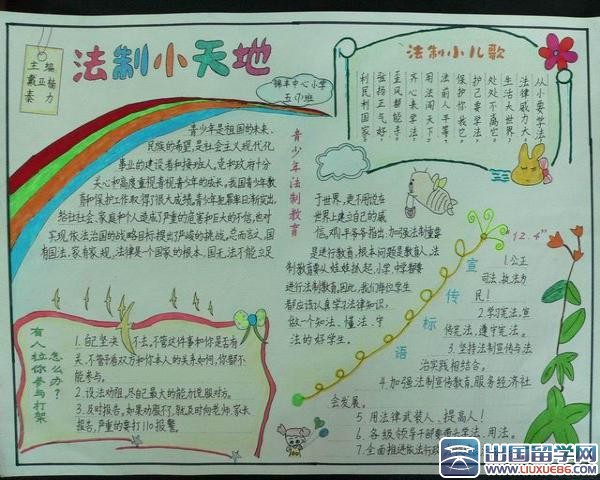 主编
戴亚杨
秦力
法制小天地
锦丰中心小学
五(1)班
法制小儿歌
从小要学法，
法律威力大。
生活大世界，
处处不离它。
护己要学法，
保护你我它。
法前人平等，
用法闯天下。
齐心来学法，
歪风都能
弘扬正气好，
利民利国家。
青少年法制教育
青少年是祖国的未来、
民族的希望，是社会主义现代化
事业的建设者和接班人。党和政府十分
关心和高度重视青少年的成长。我国青少年教
育和保护工作取得了很大成绩。青少年犯罪率日
给社社会、家庭和个人造成了严重的危害和巨大的不信，也对
实现依法治国的战略目标提出了严峻的挑战。总而言之，国
有国法，家有家规，法律是一个国家的根本。国无法不能立足
于世界，更不用说在
世界上建立自己的威
信。邓平爷爷指出：加强法制重要
是进行教育，根本问题是教育人。法
制教育要从娃娃抓起，小学、中学都要
进行法制教育。因此，我们每位学生
都应该认真学习法律知识，
做一个知法、懂法、守
法的好学生。
有人拉你参与打架
怎么办？
1.自己坚决不去，不管这件事和你是否有
关，不管看双方和你本人的关系如何，你都不
能参与。
2.设法劝阻，尽自己最大的能力说服对方。
3.及时报告。如果劝服不了，就及时向老师、家长
报告，严重的要打110报警。
宣传标语
"12.4"
1.公正
司法，执法为
民！
2.学习宪法，宣
传宪法，遵守宪法。
3.坚持法制宣传与法
治实践相结合。
4.加强法制宣传教育，服务经济社
会发展。
5.用法律武装人、提高人！
6.各级领导干部要带头学法、用法。
7.全面推进依法行政
出国留学网
www.liuxue86.com